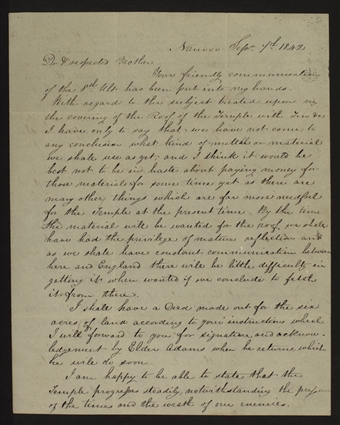 Nauvoo Sept 7th 1842
Dr & respected Brother
Your friendly communication
of the 8th Ult. has been put into my hands.
With regard to the subject treated upon viz
the covering of the Roof of the Temple with Tin &c
I have only to say that we have not come to
any conclusion what kind of material
we shall use as yet; and I think it would be
best not to be in haste about paying money for
those materials for some time yet as there are
many other things which are far more needful
for the Temple at the present time. By the time
the materials will be wanted for the roof we shall
have had the privilege of mature reflection and
as we shall have constant communication between
here and England there will be little difficulty in
getting it when wanted if we conclude to fetch
it from there.
I shall have a Deed made out for the six
acres of land according to your instruction which
I will forward to you for signature and acknow-
ledgement by Elder Adams when he returns which
he will do soon.
I am happy to be able to state that the
Temple progresses steadily notwithstanding the
of the times and the wrath of our enemies.